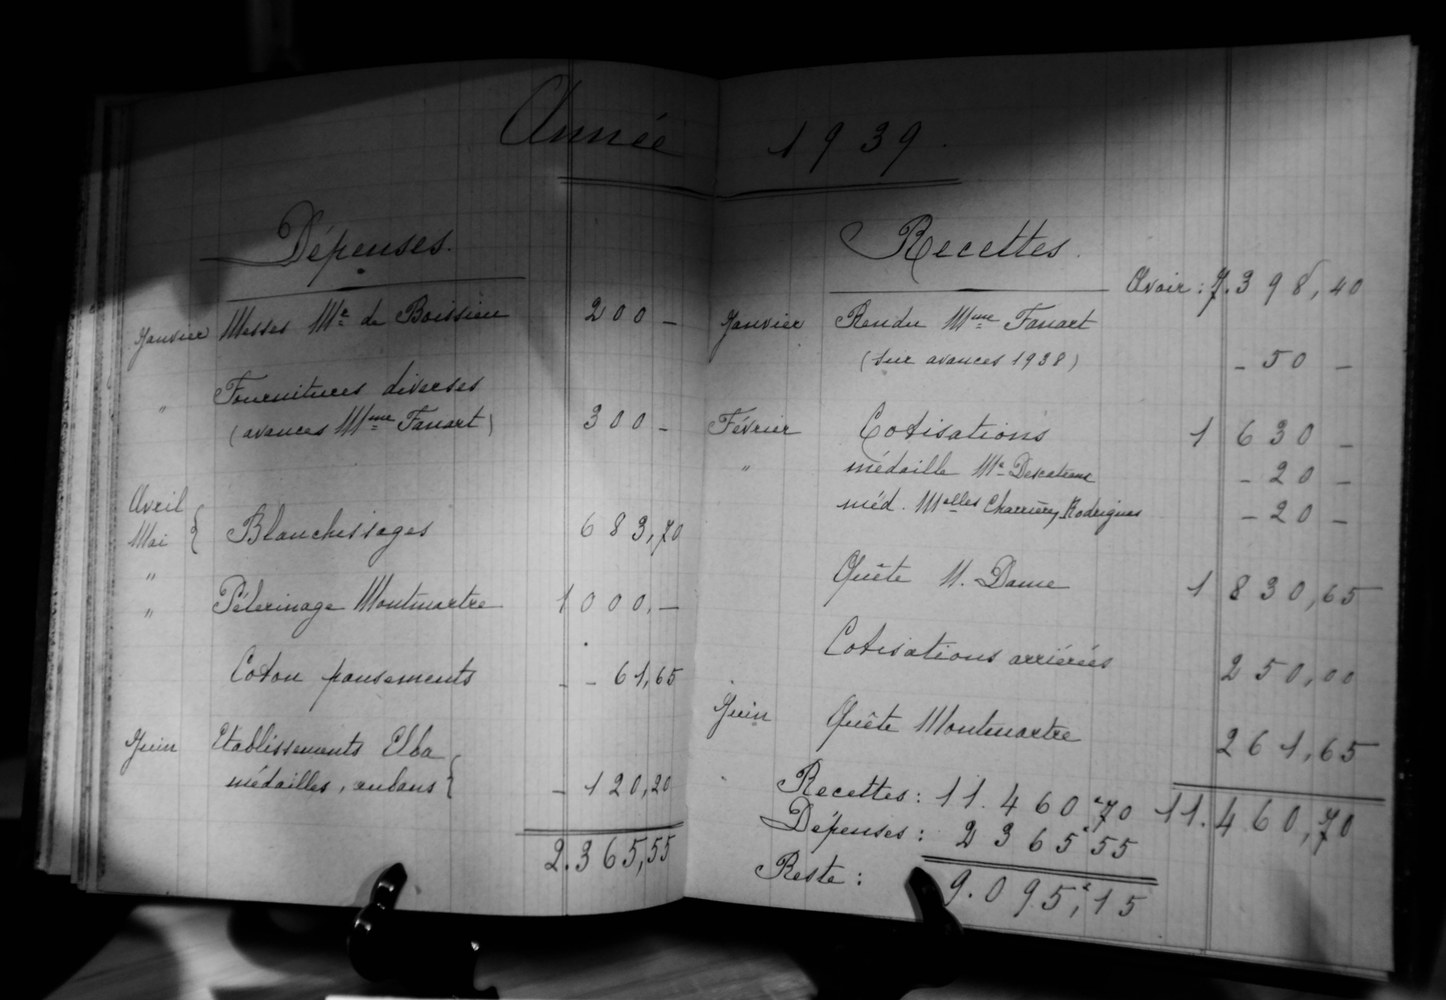 Année 1939.
Dépenses.
Janvier Messes Mr de Boissieu 200 -
" Fournitures diverses
(avances Mme Fanart) 300 -
Avril
Mai { Blanchissages 683,70
"
" Pélerinage Montmartre 1000, -
Coton pansements - - 61,65
Juin Etablissements Elba
médailles, rubans } - 120,20
2.365,55
Recettes.
Avoir : 7.398,40
Janvier Rendu Mme Fanart
(sur avances 1938) - 50 -
Février Cotisations 1 630 -
" médaille Mr - 20 -
méd. Melles Charrière, Rodrigues - 20 -
Quête N. Dame 1 830,65
Cotisations arriérées 250,00
Juin Quête Montmartre 261,65
11.460,70
Recettes : 11.460,70
Dépenses : 2 365,55
Reste : 9.095,15